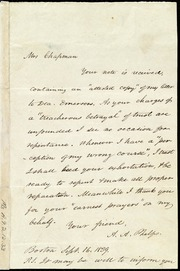 Mrs Chapman
Your note is received,
containing an "attested copy" of my letter
to Dea. Emerson. As your charges of
a "treacherous betrayal" of trust are
unfounded I see no occasion for
repentance. Whenever I have a "per-
ception of my wrong course", I trust
I shall heed your exhortation, & be
ready to repent & make all proper
reparation. Meanwhile I thank you
for your "earnest prayers" on my
behalf.
Your friend,
A. A. Phelps.
Boston Sept. 16. 1839.
P.S. It may be well to inform you